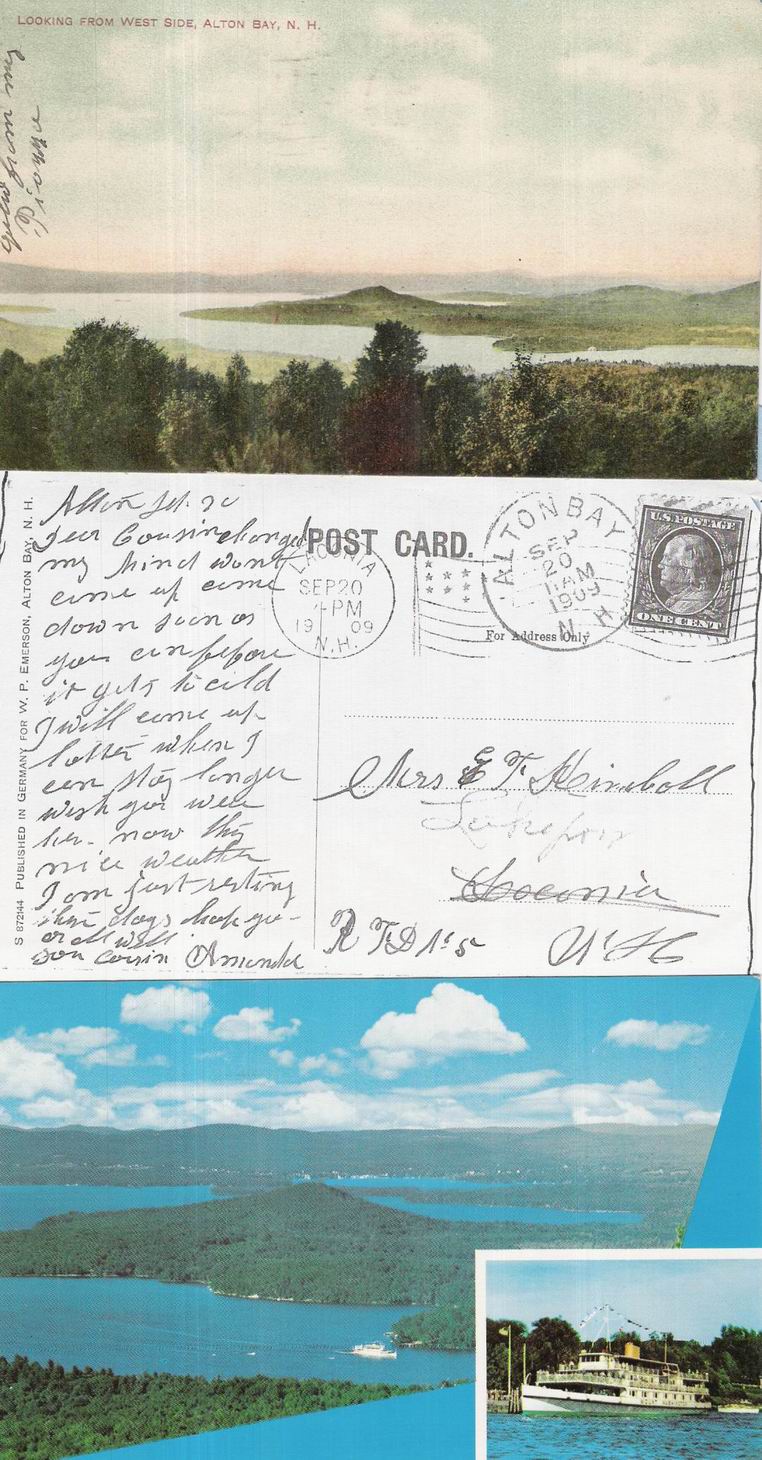 LOOKING FROM WEST SIDE, ALTON BAY, N. H.
S 872144 PUBLISHED IN GERMANY FOR W. P. EMERSON, ALTON BAY, N. H.
Alton Sept. 20
Dear Cousin changed
my mind wont
come up come
down soon as
you can before
it gets to cold
I will come up
latter when I
can stay longer
wish you were
her. now this
nice weather
I am just resting
thes days hope you
ar all well
Cousin Amanda
POST CARD.
LACONIA
SEP 20
4-PM
1909
N.H.
ALTON BAY
SEP
20
11AM
1909
N. H.
U.S. POSTAGE
ONE CENT
For Address Only
Mrs E F Kimball
Lakeport
Laconia
R F D No 5
N H